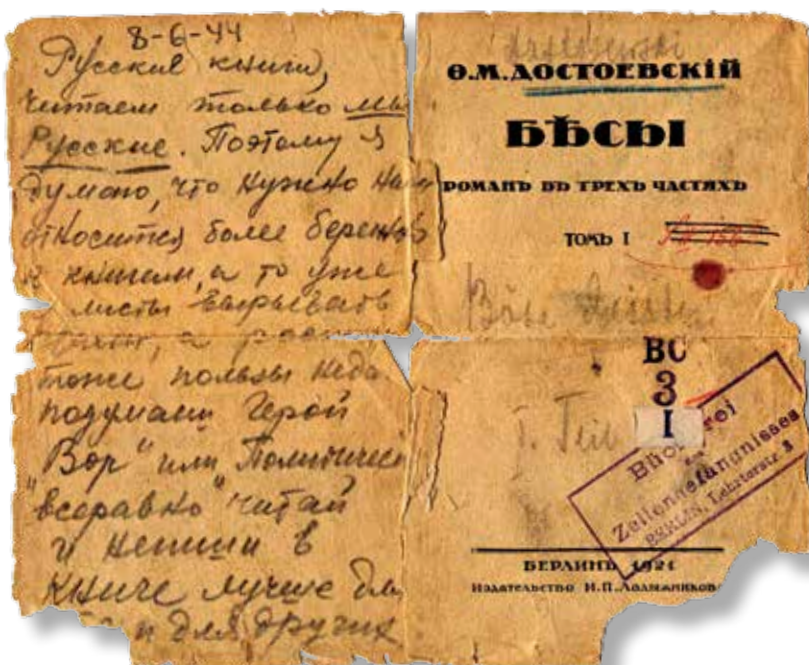 8-6-44
Русские книги,
читаем только мы
Русские. Поэтому я
думаю, что нужно нам
относится более бережно
к книгам, а то уже
листы вырывать
тоже пользы неда
подумаеш Герой
„Вор" или Политичес
"всеравно" читай
и непиши в
книге лучше для
и для других
Ѳ.М.ДОСТОЕВСКІЙ
БѢСЫ
РОМАНЪ ВЪ ТРЕХЪ ЧАСТЯХЪ
ТОМЪ I
Böse Geister
I. Teil
BC
3
I
Büch rei
des
Zellengefängnisses
BERLIN, Lehrterstr. 3
БЕРЛИНЪ 1921
Издательство И.П.Ладыжникова